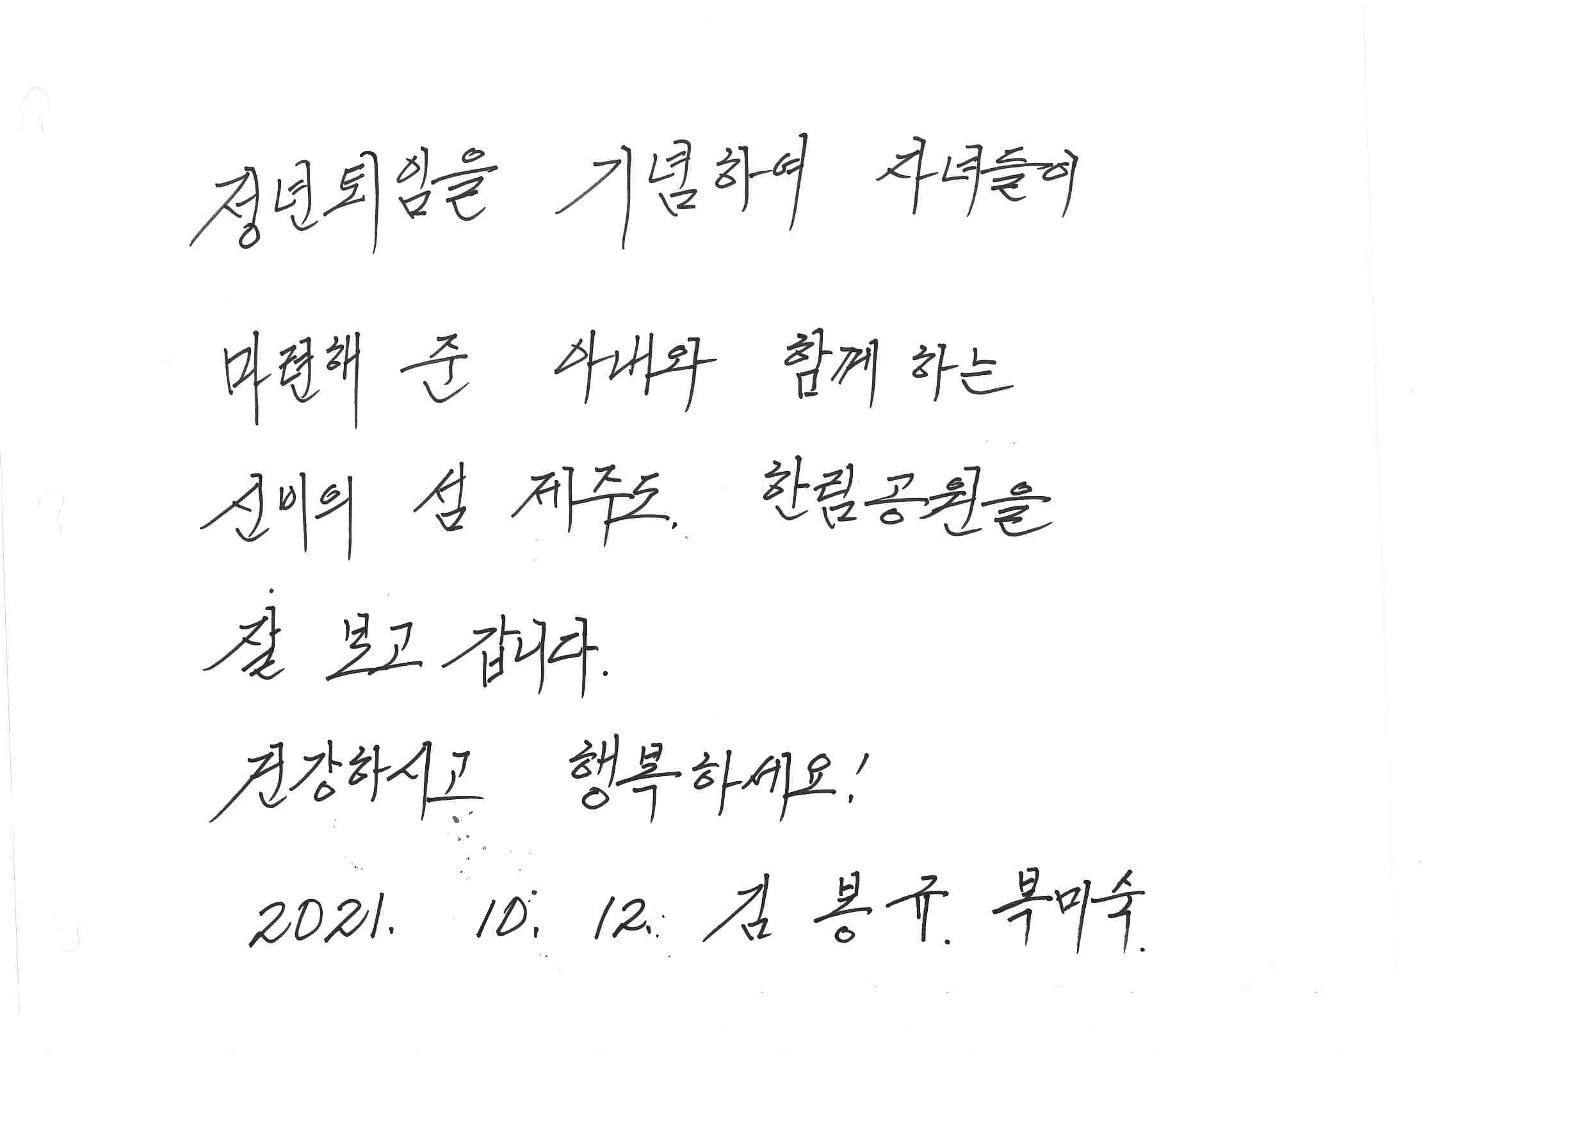 정년퇴임을 기념하여 자녀들이
마련해 준 아내와 함께 하는
신비의 섬 제주도. 한림공원을
잘 보고 갑니다.
건강하시고 행복하세요!
2021. 10. 12. 김 봉 규. 복미숙.